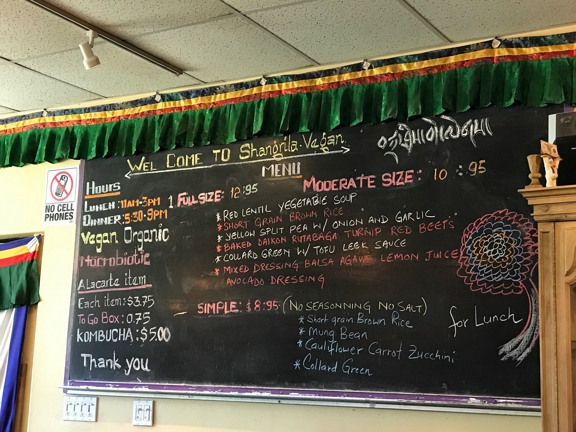 WEL COME TO Shangrila-Vegan
MENU
NO CELL
PHONES
Hours
LUNCH: 11AM-3PM
DINNER: 5:30-9PM
Vegan Organic
Macrobiotic
A lacarte item
Each item: $3.75
To Go Box: 0.75
KOMBUCHA: $5.00
Thank you
1 FULL SIZE: 12:95
MODERATE SIZE: 10:95
* RED LENTIL VEGETABLE SOUP
* SHORT GRAIN BROWN RICE
* YELLOW SPLIT PEA W/ ONION AND GARLIC
* BAKED DAIKON RUTABAGA TURNIP RED BEETS
* COLLARD GREEN W/ TOFU LEEK SAUCE
* MIXED DRESSING BALSA AGAVE LEMON JUICE
AVOCADO DRESSING
SIMPLE: $8.95 (NO SEASONNING NO SALT)
* Short grain Brown Rice
* Mung Bean
* Cauliflower Carrot Zucchini
* Collard Green
for Lunch